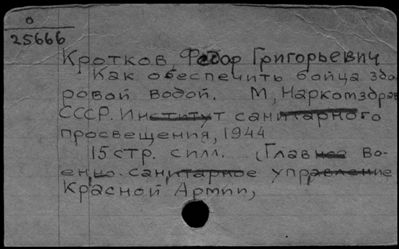 О
25666
Кротков, Федор Григорьевич
Как обеспечить бойца здо
ровой водой. М, Наркомздрав
СССР. Институт санитарного
просвещения, 1944
15 стр. силл. (Главное во-
енно-санитарное управление
Красной Армии,